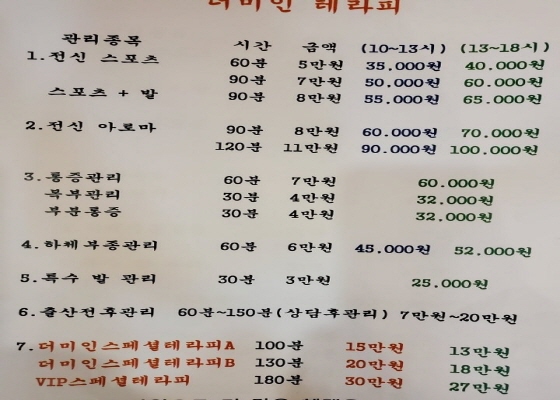 더미인 테라피
관리종목 시간 금액 (10~13시) (13~18시)
1.전신 스포츠 60분 5만원 35.000원 40.000원
90분 7만원 50.000원 60.000원
스포츠 + 발 90분 8만원 55.000원 65.000원
2.전신 아로마 90분 8만원 60.000원 70.000원
120분 11만원 90.000원 100.000원
3.통증관리 60분 7만원 60.000원
복부관리 30분 4만원 32.000원
부분통증 30분 4만원 32.000원
4.하체부종관리 60분 6만원 45.000원 52.000원
5.특수 발 관리 30분 3만원 25.000원
6.출산전후관리 60분~150분(상담후관리) 7만원~20만원
7.더미인스페셜테라피A 100분 15만원 13만원
더미인스페셜테라피B 130분 20만원 18만원
VIP스페셜테라피 180분 30만원 27만원